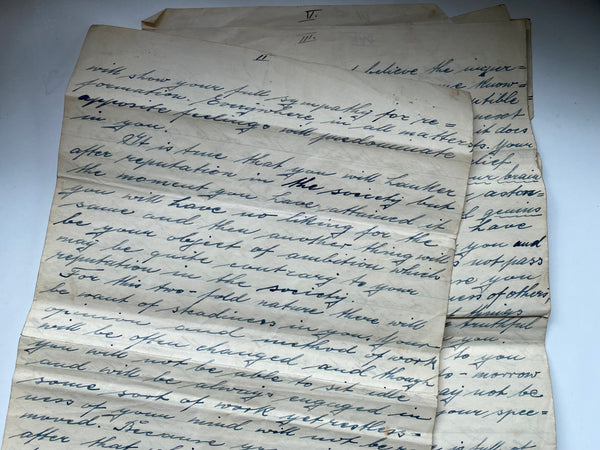 V.
III.
II
with show your full sympathy for re=
formation. Everywhere in all matters
opposite feelings will predominate
in you.
It is true that you will hanker
after reputation in the society but
the moment you have attained it
you will have no liking for the
same and then another thing will
be your object of ambition which
may be quite contrary to your
reputation in the society.
For this two-fold nature there will
be want of steadiness in you. Your
opinion and method of work
will be often changed and though
you will not be able to sit idle
and will be always engaged in
some sort of work yet restless=
ness of your mind will not be re=
moved. Because you
after that
believe the
know=
it does
Your
your brain
genius
Have
you and
not pass
you
ness of others,
things
truthful
you.
to you
morrow
may not be
your spec=